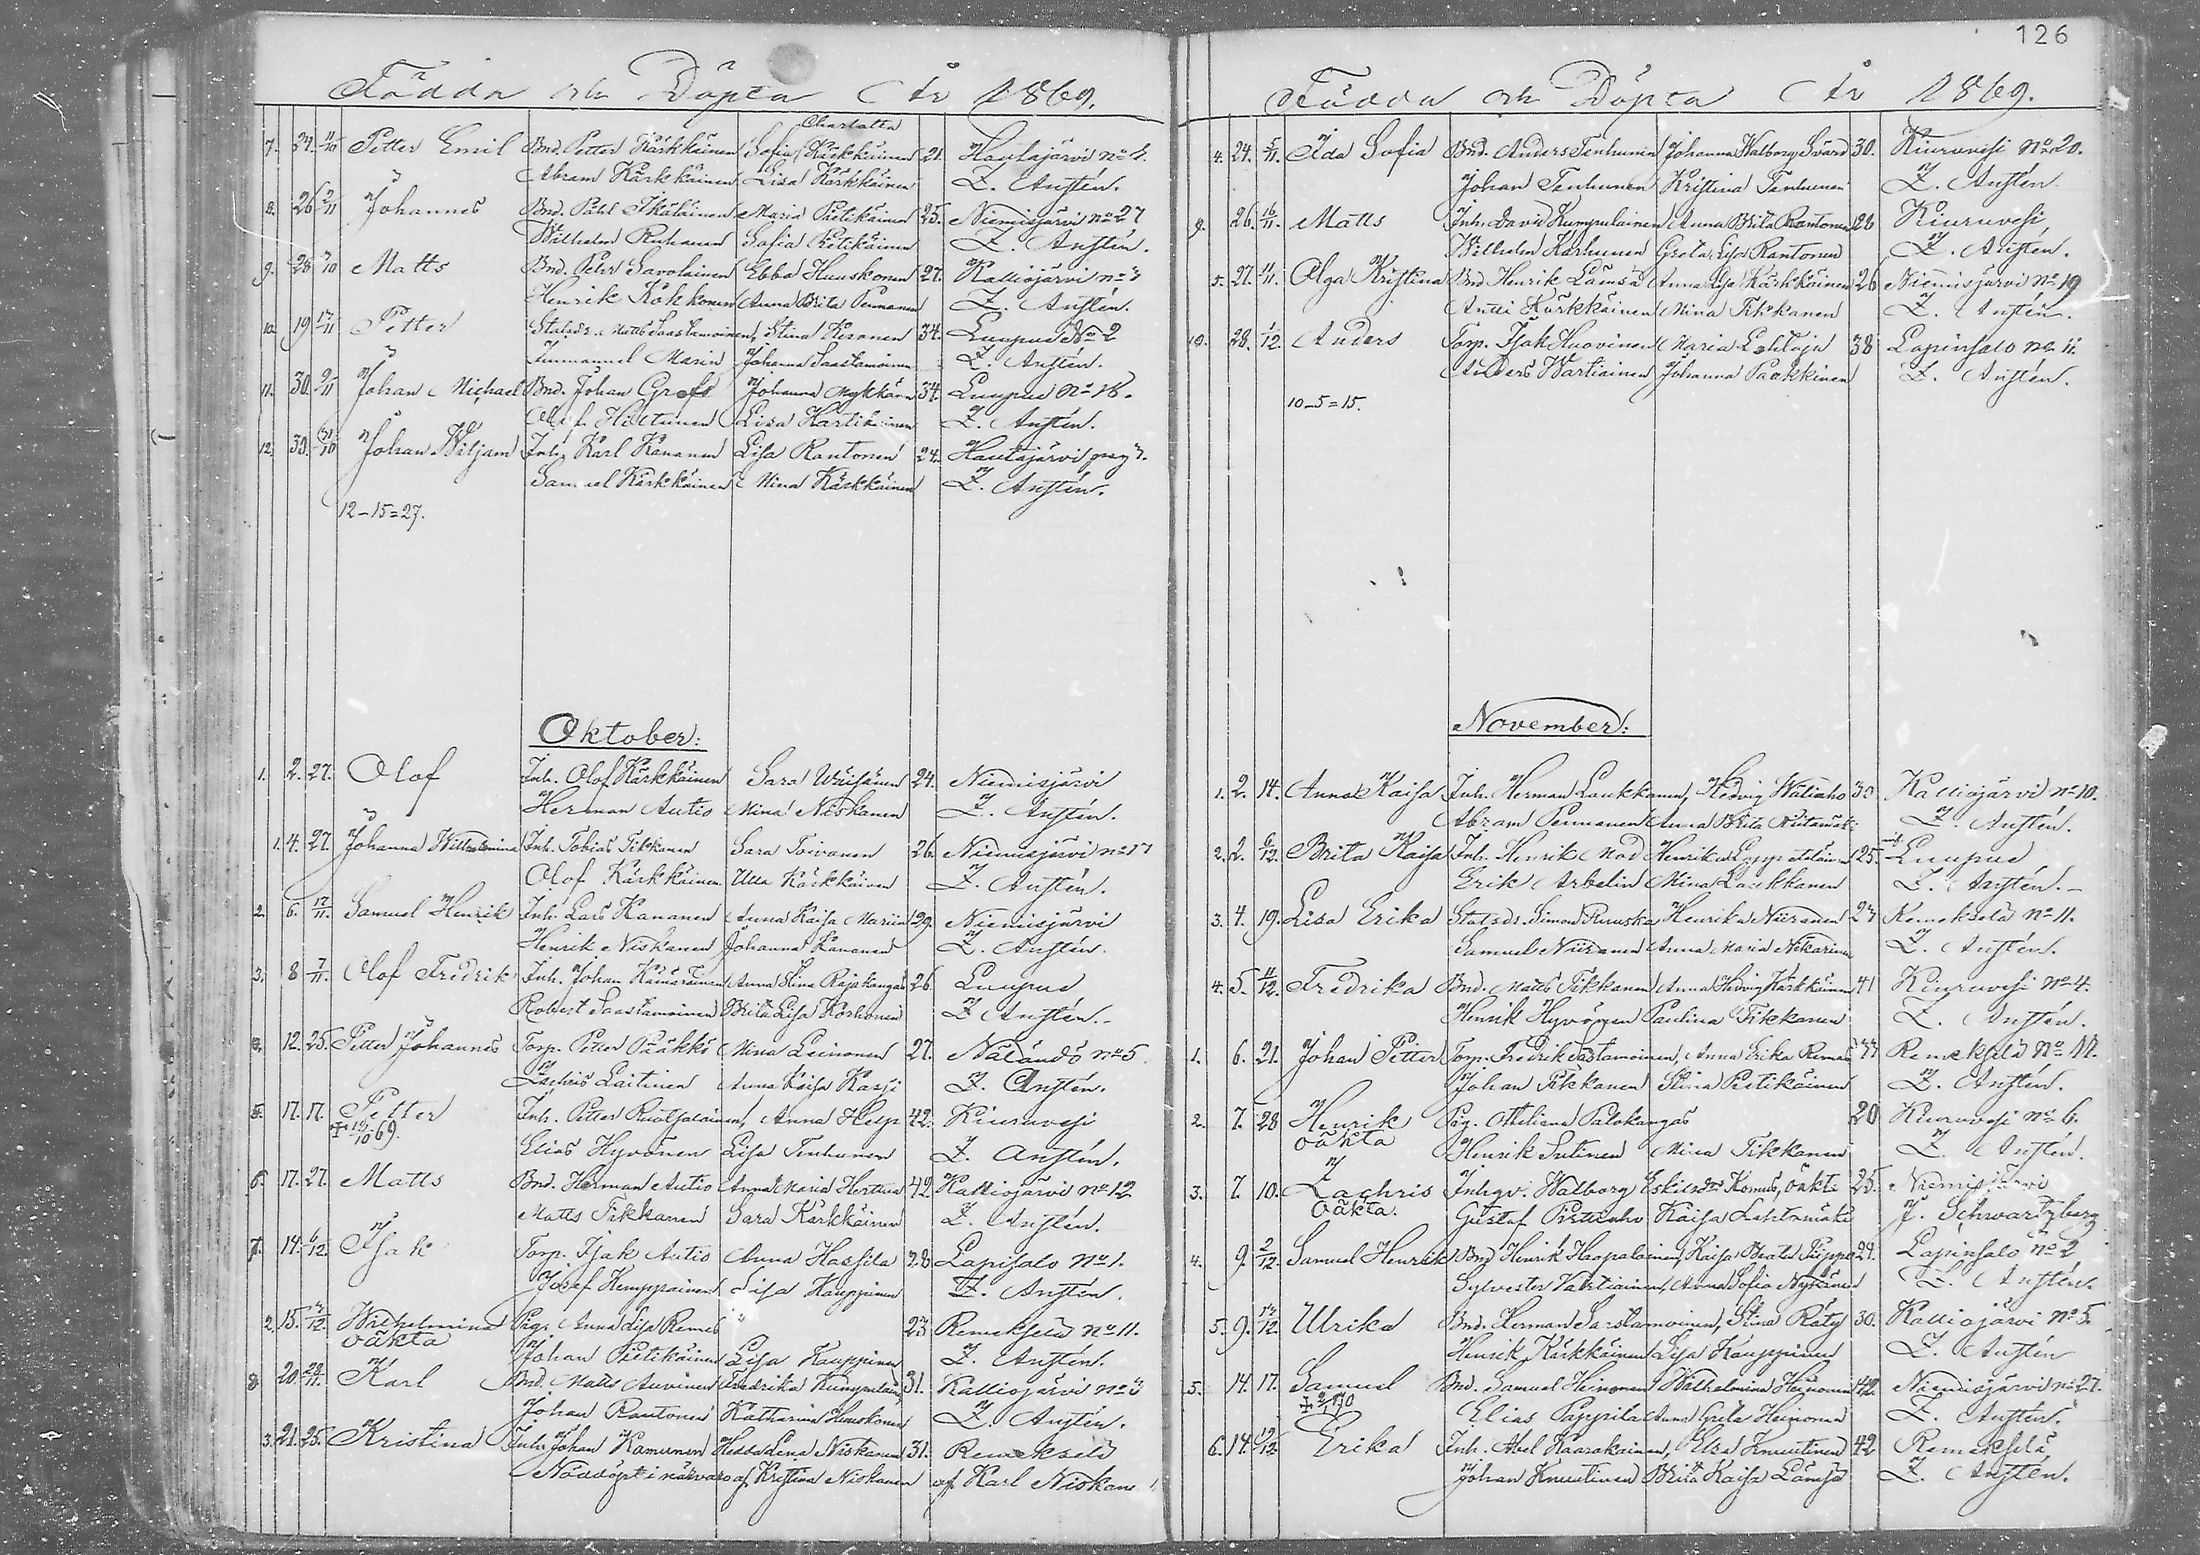 Födda och Döpta År 1869.
Charlotta
7. 24. 11/10 Petter Emil Bnd. Petter Kärkkäinen Sofia Kärkkäinen 21. Hautajärvi no 4.
Abram Kärkkäinen Lisa Kärkkäinen Z. Anstén.
8. 26 2/11 Johannes Bnd. Påhl Ikäläinen Maria Pietikäinen 25. Niemisjärvi no 27
Wilhelm Ruhanen Sofia Pietikäinen Z. Anstén.
9. 28 Matts Bnd. Peter Savolainen Ebba Huuskonen 27. Kalliojärvi no 3
Henrik Kokkonen Anna Brita Pennanen Z. Anstén.
10. 19 17/11 Petter Statsdr. Matts Saastamoinen, Stina Kesonen 34. Luupus No 2
Immanuel Marin Johanna Saastamoinen Z. Anstén.
11. 30. 9/11 Johan Michael Bnd. Johan Grefs Johanna Mykkänen 34. Luupus no 16.
Olof Hiltunen Lisa Kärkkäinen Z. Anstén.
12. 30. 31/10 Johan Wiljam Inh. Karl Kananen Lisa Rantonen 24. Hautajärvi
Samuel Kärkkäinen Mina Kärkkäinen Z. Anstén.
12-15=27.
Oktober:
1. 2. 27. Olof Inh. Olof Kärkkäinen Sara Wäisänen 24. Niemisjärvi
Herman Autio Mina Niskanen Z. Anstén.
1. 4. 27. Johanna Wilhelmina Inh. Tobias Tikkanen Sara Toivanen 26. Niemisjärvi no 17
Olof Kärkkäinen Ulla Kärkkäinen Z. Anstén.
2. 6. 17/11. Samuel Henrik Inh. Lars Kananen Anna Kaisa Mariin 29. Niemisjärvi
Henrik Niskanen Johanna Kananen Z. Anstén.
3. 8 7/11. Olof Fredrik Inh. Johan Kämäräinen Anna Stina Rajakangas 26. Luupus
Robert Saastamoinen Brita Lisa Korhonen Z. Anstén.
12. 25. Petter Johannes Torp. Petter Pääkkö Mina Leinonen 27. Näländö no 5.
Zachris Laitinen Anna Kaisa Karsi Z. Anstén.
5. 17. 17. Petter Inh. Petter Ruotsalainen, Anna Help 42. Kiuruvesi
† 19/10 69. Elias Hyvönen Lisa Tenhunen Z. Anstén.
6. 17. 27. Matts Bnd. Herman Autio Anna Maria Herttua 42. Kalliojärvi no 12
Matts Tikkanen Sara Kärkkäinen Z. Anstén.
7. 14. 1/12. Isak Torp. Isak Autio Anna Hassila 28 Lapisalo no 1.
Josef Kemppainen Lisa Kauppinen Z. Anstén.
2. 15. Wilhelmina Pigr. Anna Lisa Remes 23 Remekselä no 11.
oäkta Johan Pietikäinen Lisa Kauppinen Z. Anstén.
8 20. 28/11. Karl Bnd. Matts Auvinen Fredrika Kumpulainen 31. Kalliojärvi no 3
Johan Rantonen Katharina Huuskonen Z. Anstén.
3. 21. 25. Kristina Inh. Johan Kamunen Hedda Lena Niskanen 31. Remekselä
Nöddöpt i närvaro af Kristina Niskanen af Karl Niskanen
126
Födda och Döpta År 1869.
4. 24. 5/11. Ida Sofia Bnd. Anders Tenhunen Johanna Walborg Svärd 30. Kiuruvesi No 20.
Johan Tenhunen Kristina Tenhunen Z. Anstén.
9. 26. 16/11. Matts Inh. David Kumpulainen Anna Brita Rantonen 26 Kiuruvesi
Wilhelm Karhunen Greta Lisa Rantonen Z. Anstén.
5. 27. 11/11. Olga Kristina Bnd Henrik Lämsä Anna Lisa Kärkkäinen 26 Niemisjärvi No 19
Antti Kärkkäinen Mina Tikkanen Z. Anstén.
10. 28. 1/12. Anders Torp. Isak Huovinen Maria Lehtoja 38 Lapinsalo no 11.
Anders Wartiainen Johanna Paakkinen Z. Anstén.
10-5=15.
November:
1. 2. 14. Anna Kaisa Inh. Herman Laukkanen, Hedvig Wäliaho 30 Kalliojärvi no 10.
Abram Pennanen Anna Brita Z. Anstén.
2. 2. 6/12. Brita Kaisa Inh. Henrik Mod Henrika 25. Luupus
Erik Arbelin Mina Laukkanen Z. Anstén.
3. 4. 19. Lisa Erika Statsdr. Simon Ruuska Henrika Niiranen 27 Remekselä no 11.
Samuel Niiranen Anna Maria Nikarinen Z. Anstén.
4. 5. 11/12. Fredrika Bnd. Matts Tikkanen Anna Hedvig Kärkkäinen 41 Kiuruvesi no 4.
Henrik Hyvönen Paulina Tikkanen Z. Anstén.
1. 6. 21. Johan Petter Torp. Fredrik Sastamoinen, Anna Erika Remes 33 Remekselä No 11.
Johan Tikkanen Stina Pietikäinen Z. Anstén.
2. 7. 28 Henrik Pig. Ottiliana Palokangas 20 Kiuruvesi no 6.
oäkta Henrik Sutinen Mina Tikkanen Z. Anstén.
3. 7. 10. Zachris Inhqv. Walborg Eskilsdr Komus, oäkta 25. Niemisjärvi
Oäkta. Gustaf Pirttiaho Kaisa Lehtomäki J. Schwartzberg
4. 9. 2/12. Samuel Henrik Bnd Henrik Haapalainen, Kaisa Beata Piippo 29. Lapinsalo no 2
Sylvester Vartiainen, Anna Sofia Nykänen Z. Anstén.
5. 9. 13/12. Ulrika Bnd. Herman Sarstamoinen, Stina Räty 30. Kalliojärvi no 5.
Henrik Kärkkäinen Lisa Kauppinen Z. Anstén
5. 14. 17. Samuel Bnd. Samuel Heinonen Wilhelmina Heinonen 42 Niemisjärvi no 27.
Elias Pappila Anna Greta Heinonen Z. Anstén.
6. 14. 19/12. Erika Inh. Abel Kaarakainen, Elsa Knuutinen 42 Remekselä
Johan Knuutinen Brita Kaisa Lämsä Z. Anstén.